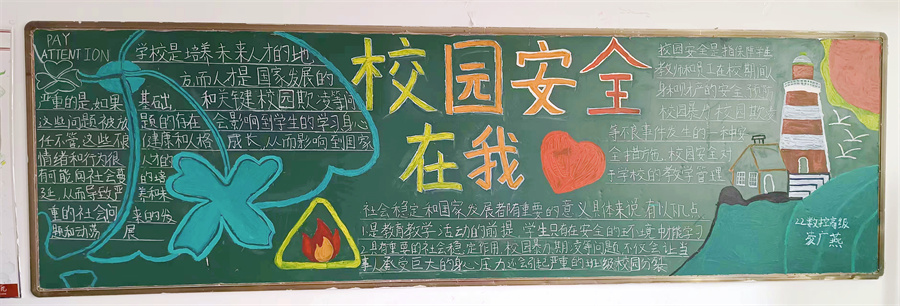 PAY
ATTENTION
学校是培养未来人才的地
方而人才是国家发展的
基础, 和关键校园欺凌等问
题的存在 会影响到学生的学习身心
健康和人格 成长,从而影响到国家
人才的
的培
养和未
来的发
展
严重的是如果
这些问题被放
任不管,这些极
情绪和行为很
有可能向社会蔓
延,从而导致严
重的社会问
题和动荡
校园安全
在我
校园安全是指保障在
教师和职工在校期间人
身和财产的安全
校园是
事 发生的一种
全措施,校园安全对
于学校的教学管理
社会稳定和国家发展都有重要的意义具体来说,有以下几点
1.是教育教学活动的前提,学生只有在安全的环境,才能学习
2.具有重要的社会稳定作用,校园暴力,欺凌等问题,不仅会让当
事人承受巨大的身心压力,还会引起严重的班级校园分裂
22数控高级